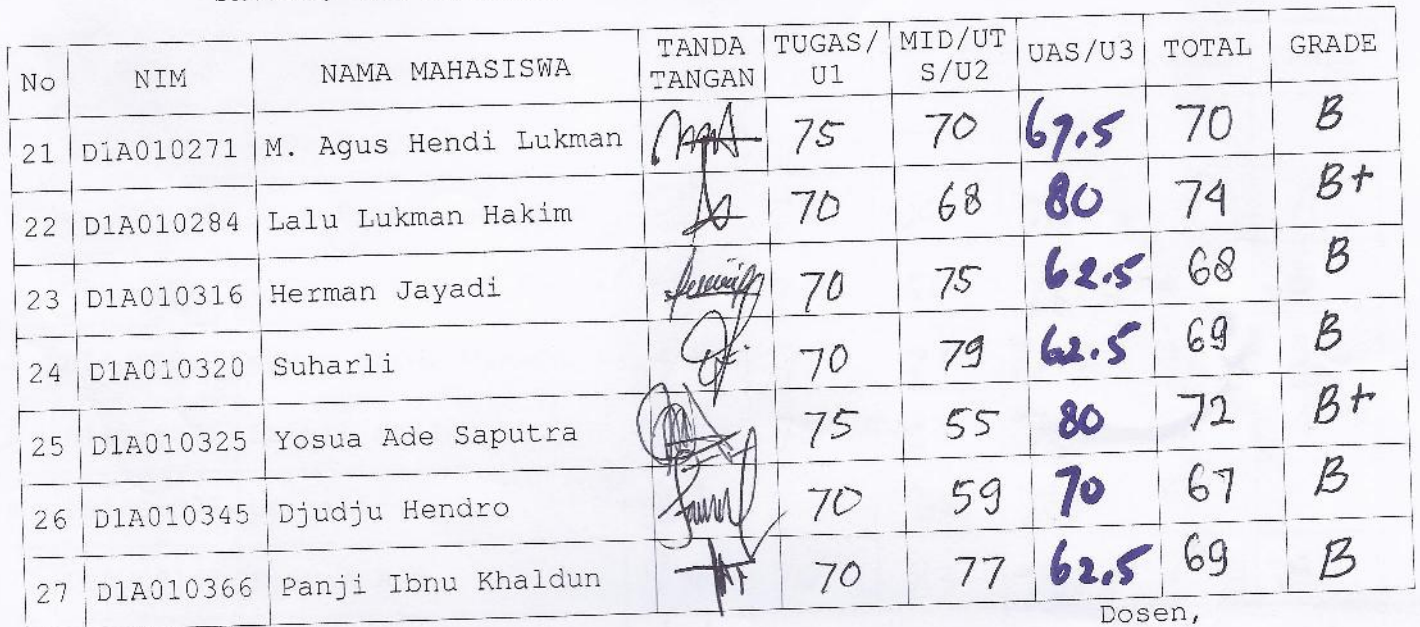 No NIM NAMA MAHASISWA TANDA TANGAN TUGAS/ U1 MID/UT S/U2 UAS/U3 TOTAL GRADE
21 D1A010271 M. Agus Hendi Lukman 75 70 67.5 70 B
22 D1A010284 Lalu Lukman Hakim 70 68 80 74 B+
23 D1A010316 Herman Jayadi 70 75 62.5 68 B
24 D1A010320 Suharli 70 79 62.5 69 B
25 D1A010325 Yosua Ade Saputra 75 55 80 72 B+
26 D1A010345 Djudju Hendro 70 59 70 67 B
27 D1A010366 Panji Ibnu Khaldun 70 77 62.5 69 B
Dosen,